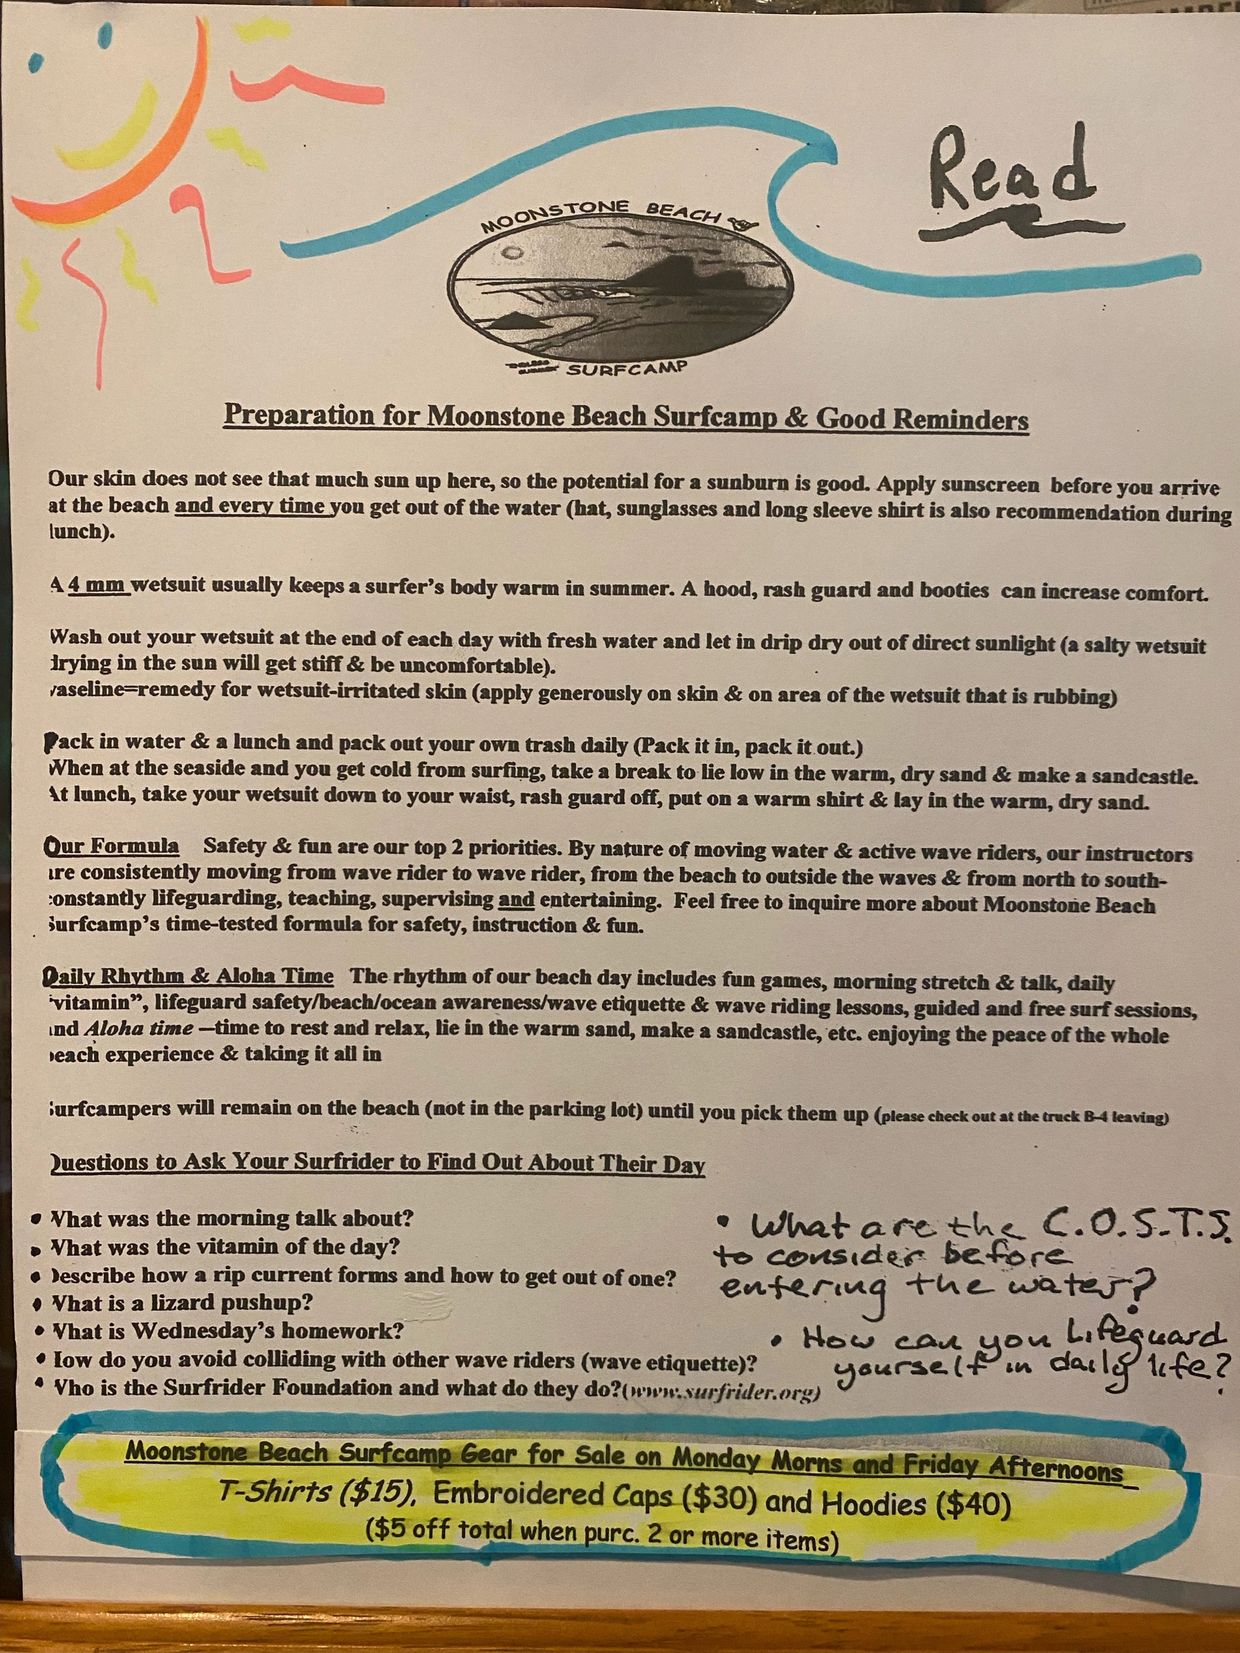 Read
MOONSTONE BEACH
SURFCAMP
Preparation for Moonstone Beach Surfcamp & Good Reminders
Our skin does not see that much sun up here, so the potential for a sunburn is good. Apply sunscreen before you arrive
at the beach and every time you get out of the water (hat, sunglasses and long sleeve shirt is also recommendation during
lunch).
A 4 mm wetsuit usually keeps a surfer's body warm in summer. A hood, rash guard and booties can increase comfort.
Wash out your wetsuit at the end of each day with fresh water and let in drip dry out of direct sunlight (a salty wetsuit
drying in the sun will get stiff & be uncomfortable).
vaseline=remedy for wetsuit-irritated skin (apply generously on skin & on area of the wetsuit that is rubbing)
Pack in water & a lunch and pack out your own trash daily (Pack it in, pack it out.)
When at the seaside and you get cold from surfing, take a break to lie low in the warm, dry sand & make a sandcastle.
At lunch, take your wetsuit down to your waist, rash guard off, put on a warm shirt & lay in the warm, dry sand.
Our Formula Safety & fun are our top 2 priorities. By nature of moving water & active wave riders, our instructors
are consistently moving from wave rider to wave rider, from the beach to outside the waves & from north to south-
constantly lifeguarding, teaching, supervising and entertaining. Feel free to inquire more about Moonstone Beach
Surfcamp's time-tested formula for safety, instruction & fun.
Daily Rhythm & Aloha Time The rhythm of our beach day includes fun games, morning stretch & talk, daily
"vitamin", lifeguard safety/beach/ocean awareness/wave etiquette & wave riding lessons, guided and free surf sessions,
and Aloha time –time to rest and relax, lie in the warm sand, make a sandcastle, etc. enjoying the peace of the whole
beach experience & taking it all in
Surfcampers will remain on the beach (not in the parking lot) until you pick them up (please check out at the truck B-4 leaving)
Questions to Ask Your Surfrider to Find Out About Their Day
• What was the morning talk about?
• What was the vitamin of the day?
• Describe how a rip current forms and how to get out of one?
• What is a lizard pushup?
• What is Wednesday's homework?
• How do you avoid colliding with other wave riders (wave etiquette)?
• Who is the Surfrider Foundation and what do they do?(www.surfrider.org)
• What are the C.O.S.T.S.
to consider before
entering the water?
• How can you Lifeguard
yourself in daily life?
Moonstone Beach Surfcamp Gear for Sale on Monday Morns and Friday Afternoons
T-Shirts ($15), Embroidered Caps ($30) and Hoodies ($40)
($5 off total when purc. 2 or more items)